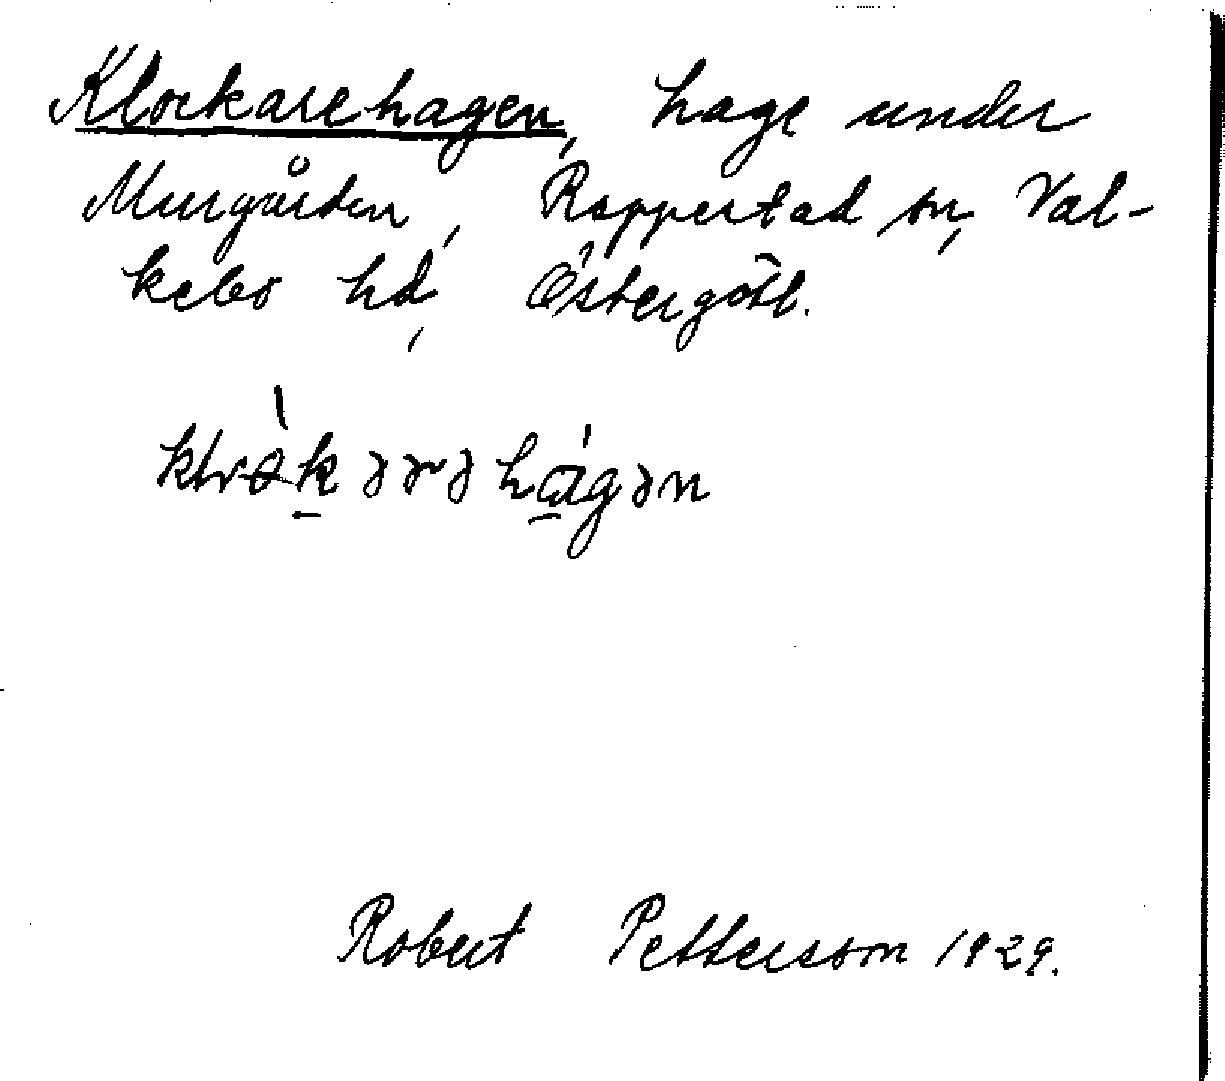 Klockarehagen, hage under
Murgården, Rappestad sn, Val-
kebo hd, Östergötl.
Robert Pettersson 1929.